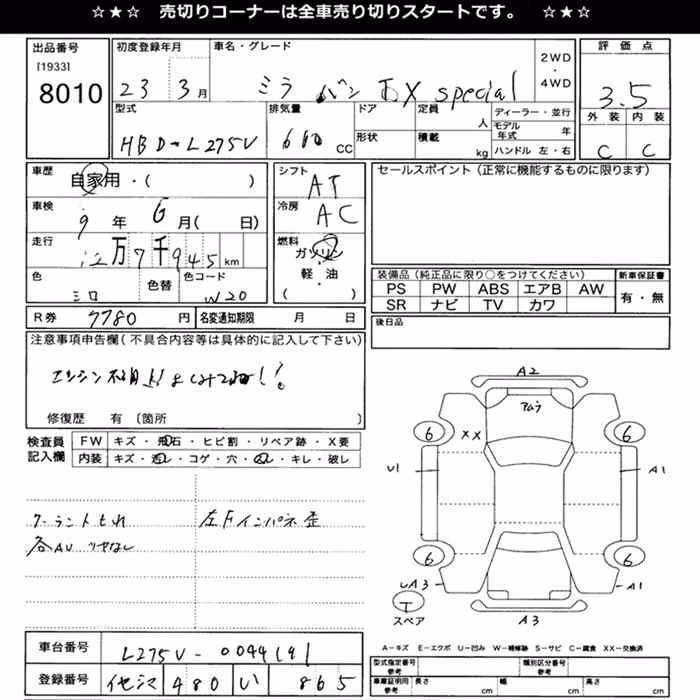 ☆★☆ 売切りコーナーは全車売り切りスタートです。 ☆★☆
出品番号 初度登録年月 車名・グレード 2WD・4WD 評価点
[1933]
8010 23 3月 ミラ バン TX special 3.5
外装 内装
C C
型式 排気量 ドア 定員 人 ディーラー・並行
HBD-L275V 660 CC 形状 積載 kg モデル年式 年
ハンドル 左・右
車歴 自家用・( ) シフト AT セールスポイント（正常に機能するものに限ります）
車検 9年 6月( 日) 冷房 AC
走行 万7千945km 燃料 ガソリン・軽・油 ( )
色 色替 色コード W20
装備品（純正品に限り○をつけてください） 新車保証書
PS PW ABS エアB AW 有・無
SR ナビ TV カワ
R券 7780円 名変通知期限 月 日 後日品
注意事項申告欄（不具合内容等は具体的に記入して下さい）
エンジン
修復歴 有 〔箇所 〕
検査員記入欄 FW キズ・飛石・ヒビ割・リペア跡・X要
内装 キズ・汚レ・コゲ・穴・スレ・キレ・破レ
クーラントもれ 左Fインパネ歪
各AU ツヤなし
A2
アムラ
6 XX 6
U1 A1
6 6
UA3 A1
T
スペア A3
A－キズ E－エクボ U－凹み W－補修跡 S－サビ C－腐食 XX－交換済
車台番号 L275V-0044191
登録番号 480 い 865
型式指定番号 参考 類別区分番号 参考
車庫証明用 参考 長さ cm 幅 cm 高さ cm